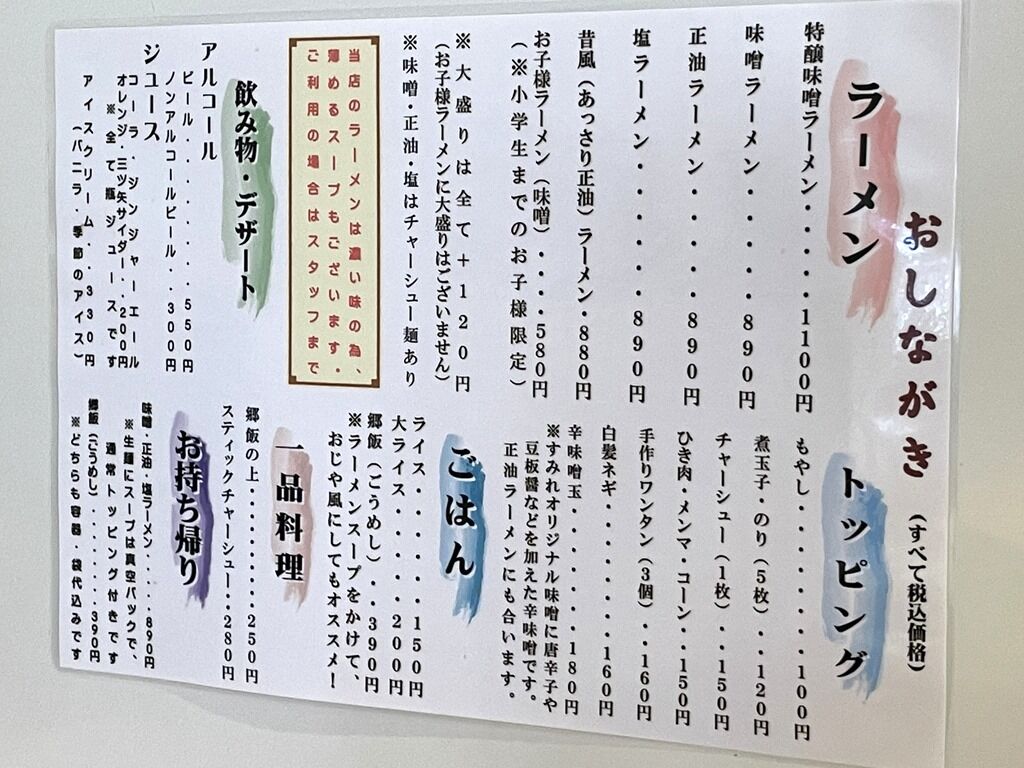 おしながき (すべて税込価格)
ラーメン
特醸味噌ラーメン・・・・1100円
味噌ラーメン・・・・・・890円
正油ラーメン・・・・・・890円
塩ラーメン・・・・・・・890円
昔風(あっさり正油)ラーメン・880円
お子様ラーメン(味噌)・・・・580円
(※小学生までのお子様限定)
※大盛りは全て+120円
(お子様ラーメンに大盛りはございません)
※味噌・正油・塩はチャーシュー麺あり
当店のラーメンは濃い味の為、
薄めるスープもございます。
ご利用の場合はスタッフまで
飲み物・デザート
アルコール
ビール・・・・・・・・550円
ノンアルコールビール・・300円
ジュース
コーラ・ジンジャーエール
オレンジ・三ツ矢サイダー・・200円
※全て瓶ジュースです
アイスクリーム・・330円
(バニラ・季節のアイス)
トッピング
もやし・・・・・・・・100円
煮玉子・のり(5枚)・・120円
チャーシュー(1枚)・・150円
ひき肉・メンマ・コーン・・150円
手作りワンタン(3個)・・160円
白髪ネギ・・・・・・・・160円
辛味噌玉・・・・・・・・180円
※すみれオリジナル味噌に唐辛子や
豆板醤などを加えた辛味噌です。
正油ラーメンにも合います。
ごはん
ライス・・・・・150円
大ライス・・・・200円
郷飯(ごうめし)・・390円
※ラーメンスープをかけて、
おじや風にしてもオススメ!
一品料理
郷飯の上・・・・・・・・250円
スティックチャーシュー・・280円
お持ち帰り
味噌・正油・塩ラーメン・・・・890円
※生麺にスープは真空パックで、
通常トッピング付きです
郷飯(ごうめし)・・・・・・・390円
※どちらも容器・袋代込みです